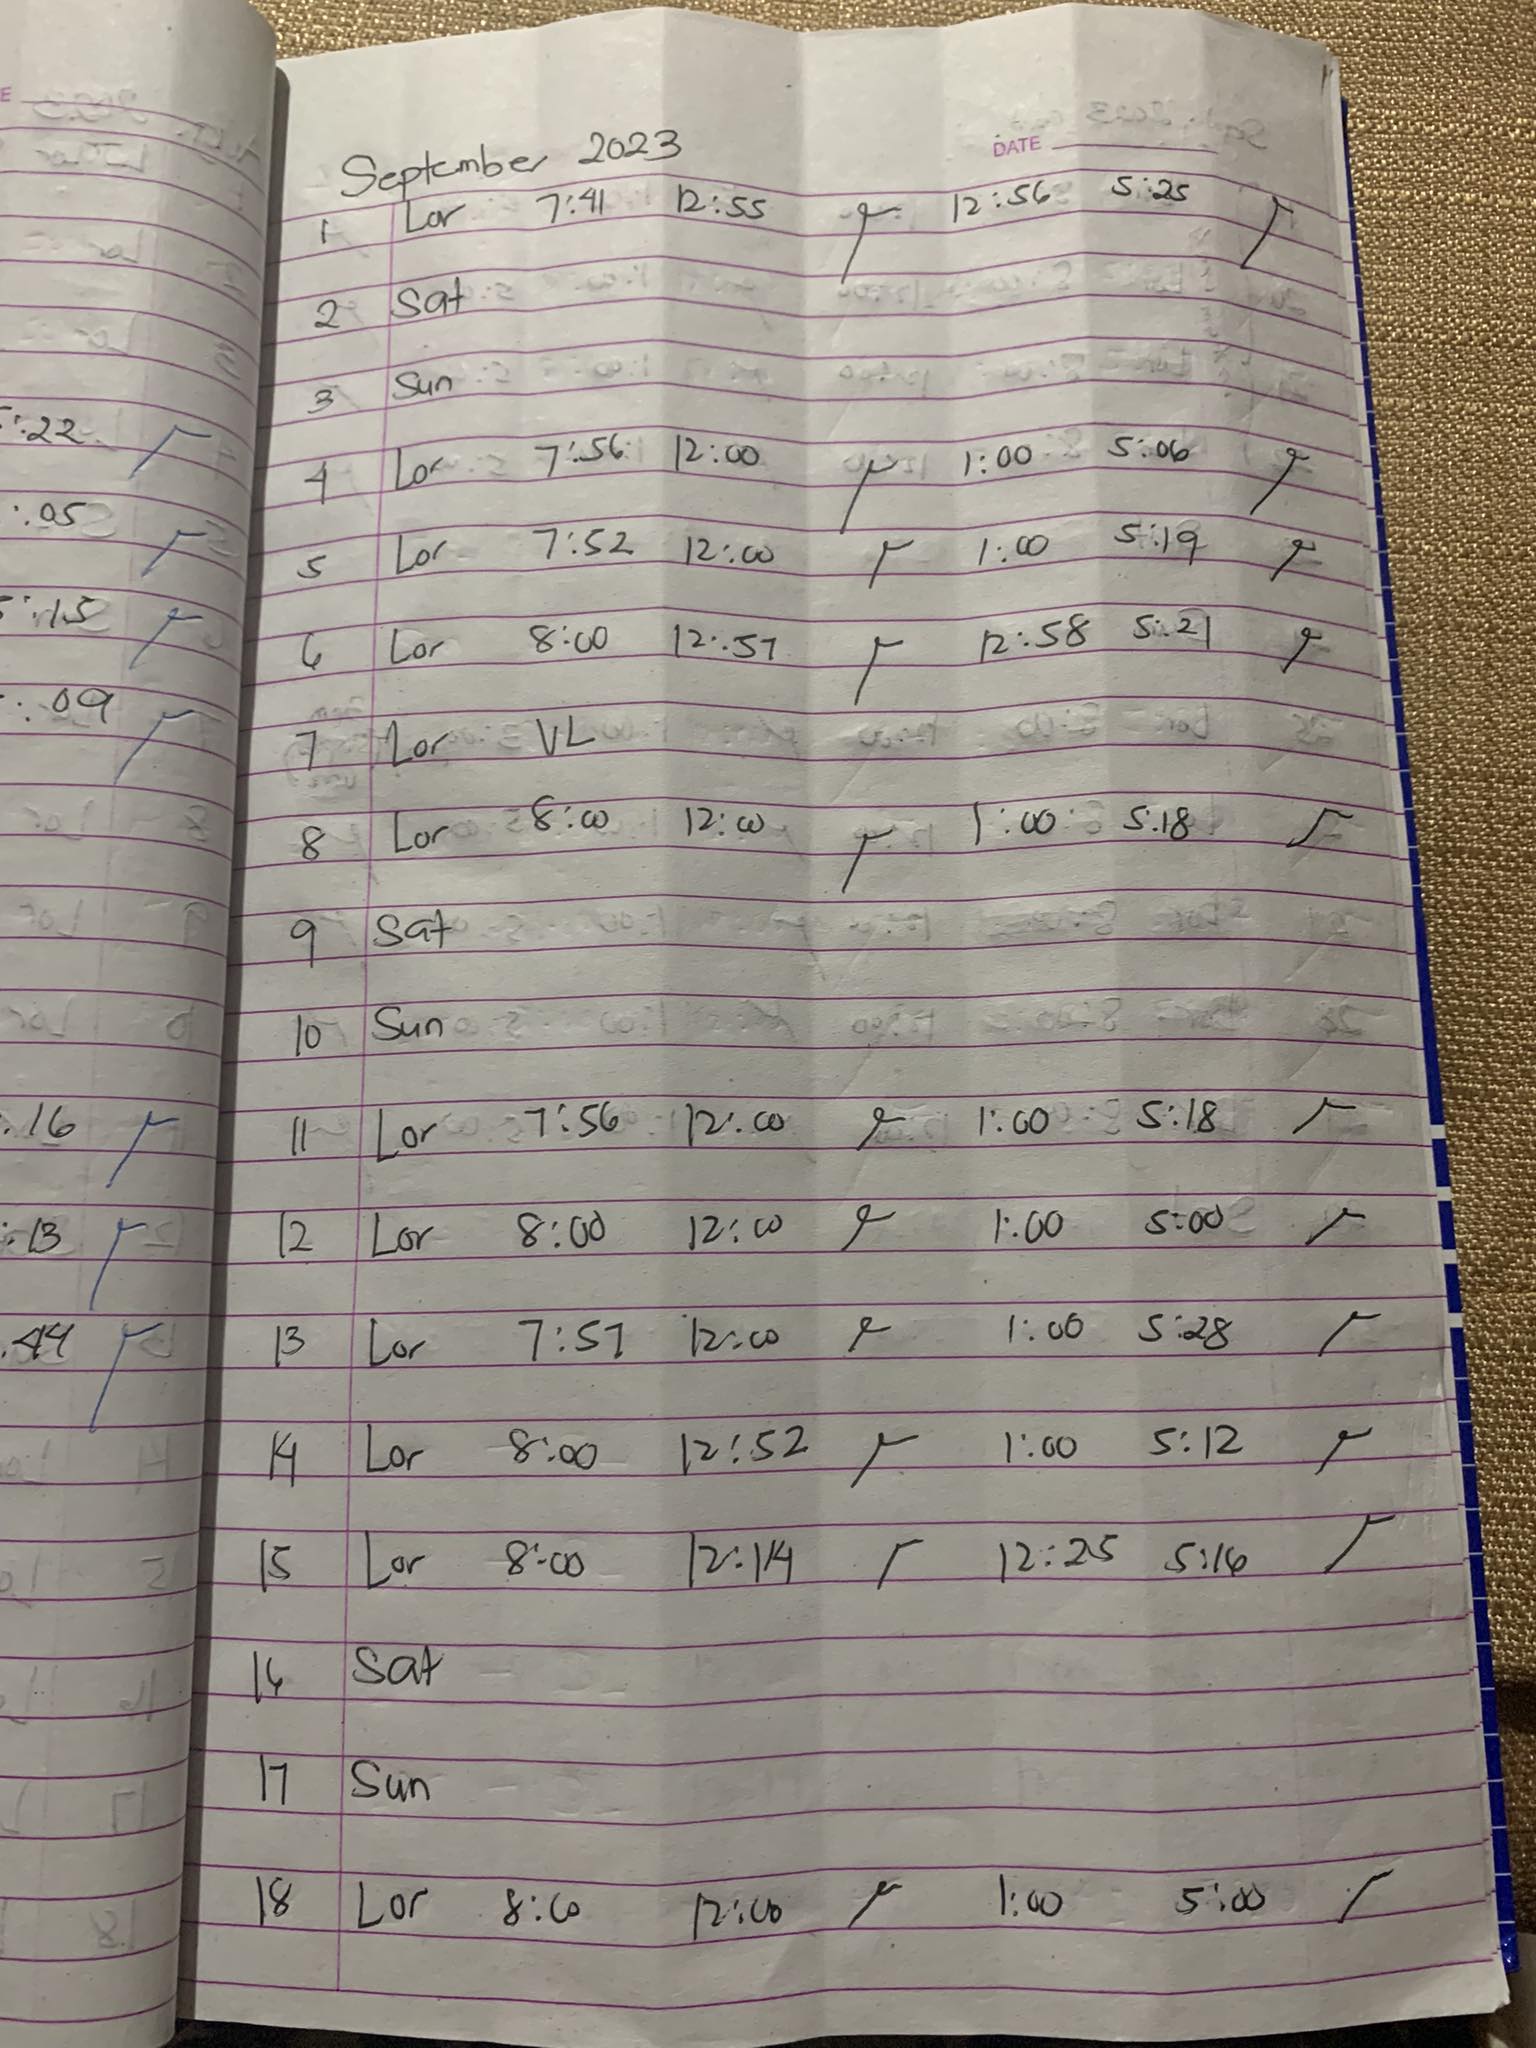 E
5:22
:05
5:15
:09
.16
:13
.44
September 2023
DATE
1 Lor 7:41 12:55 12:56 5:25
2 Sat
3 Sun
4 Lor 7:56 12:00 1:00 5:06
5 Lor 7:52 12:00 1:00 5:19
6 Lor 8:00 12:57 12:58 5:21
7 Lor VL
8 Lor 8:00 12:00 1:00 5:18
9 Sat
10 Sun
11 Lor 7:56 12:00 1:00 5:18
12 Lor 8:00 12:00 1:00 5:00
13 Lor 7:57 12:00 1:00 5:28
14 Lor 8:00 12:52 1:00 5:12
15 Lor 8:00 12:14 12:25 5:16
16 Sat
17 Sun
18 Lor 8:00 12:00 1:00 5:00